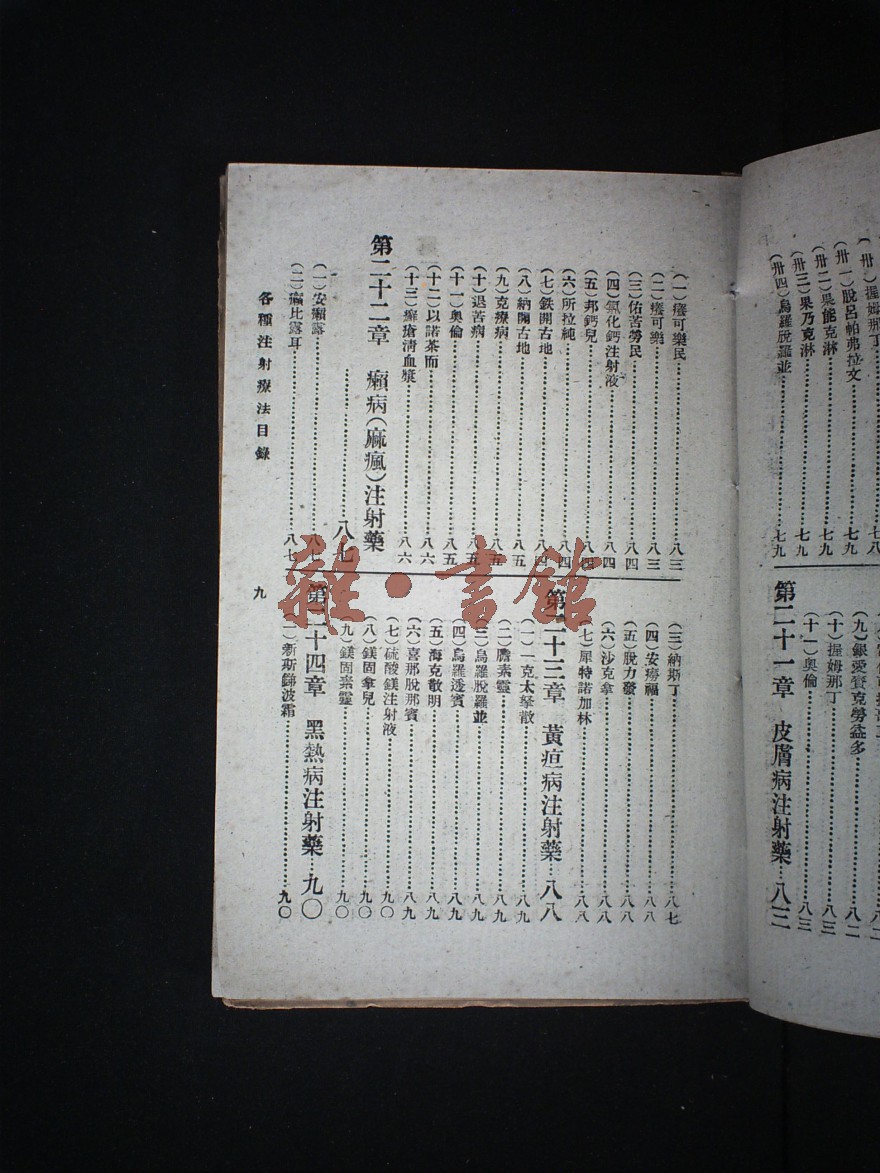 (卅一)脫呂帕弗拉文……七九
(卅二)果能克淋……七九
(卅三)果乃克淋……七九
(卅四)烏羅脫羅並……七九
(九)銀愛賚克勞益多……八二
(十)握姆那丁……八三
(十一)奥倫……八三
第二十一章 皮膚病注射藥……八三
(一)癢可樂民……八三
(二)癢可樂……八三
(三)佑苦勞民……八四
(四)氯化鈣注射液……八四
(五)邦鈣兒……八四
(六)所拉純……八四
(七)鉄開古地……八四
(八)納關古地……八五
(九)克療病……八五
(十)退苦病……八五
(十一)奥倫……八五
(十二)以諾茶而……八六
(十三)癬瘡淸血漿……八六
第二十二章 癩病(麻瘋)注射藥
……八七
(一)安癩露……八七
(二)癩比露耳……八七
(三)納斯丁……八七
(四)安癆福……八八
(五)脫力發……八八
(六)沙克拿……八八
(七)犀特諾加林……八八
第二十三章 黃疸病注射藥……八八
(一)一克太拏散……八九
(二)膽素靈……八九
(三)烏羅脫羅並……八九
(四)烏羅透賓……八九
(五)海克散明……八九
(六)喜那脫那賓……八九
(七)硫酸鎂注射液……九〇
(八)鎂固拿兒……九〇
(九)鎂固素靈……九〇
第二十四章 黑熱病注射藥……九〇
(一)新斯銻波霜……九〇
各種注射療法目錄
九
雜·書館